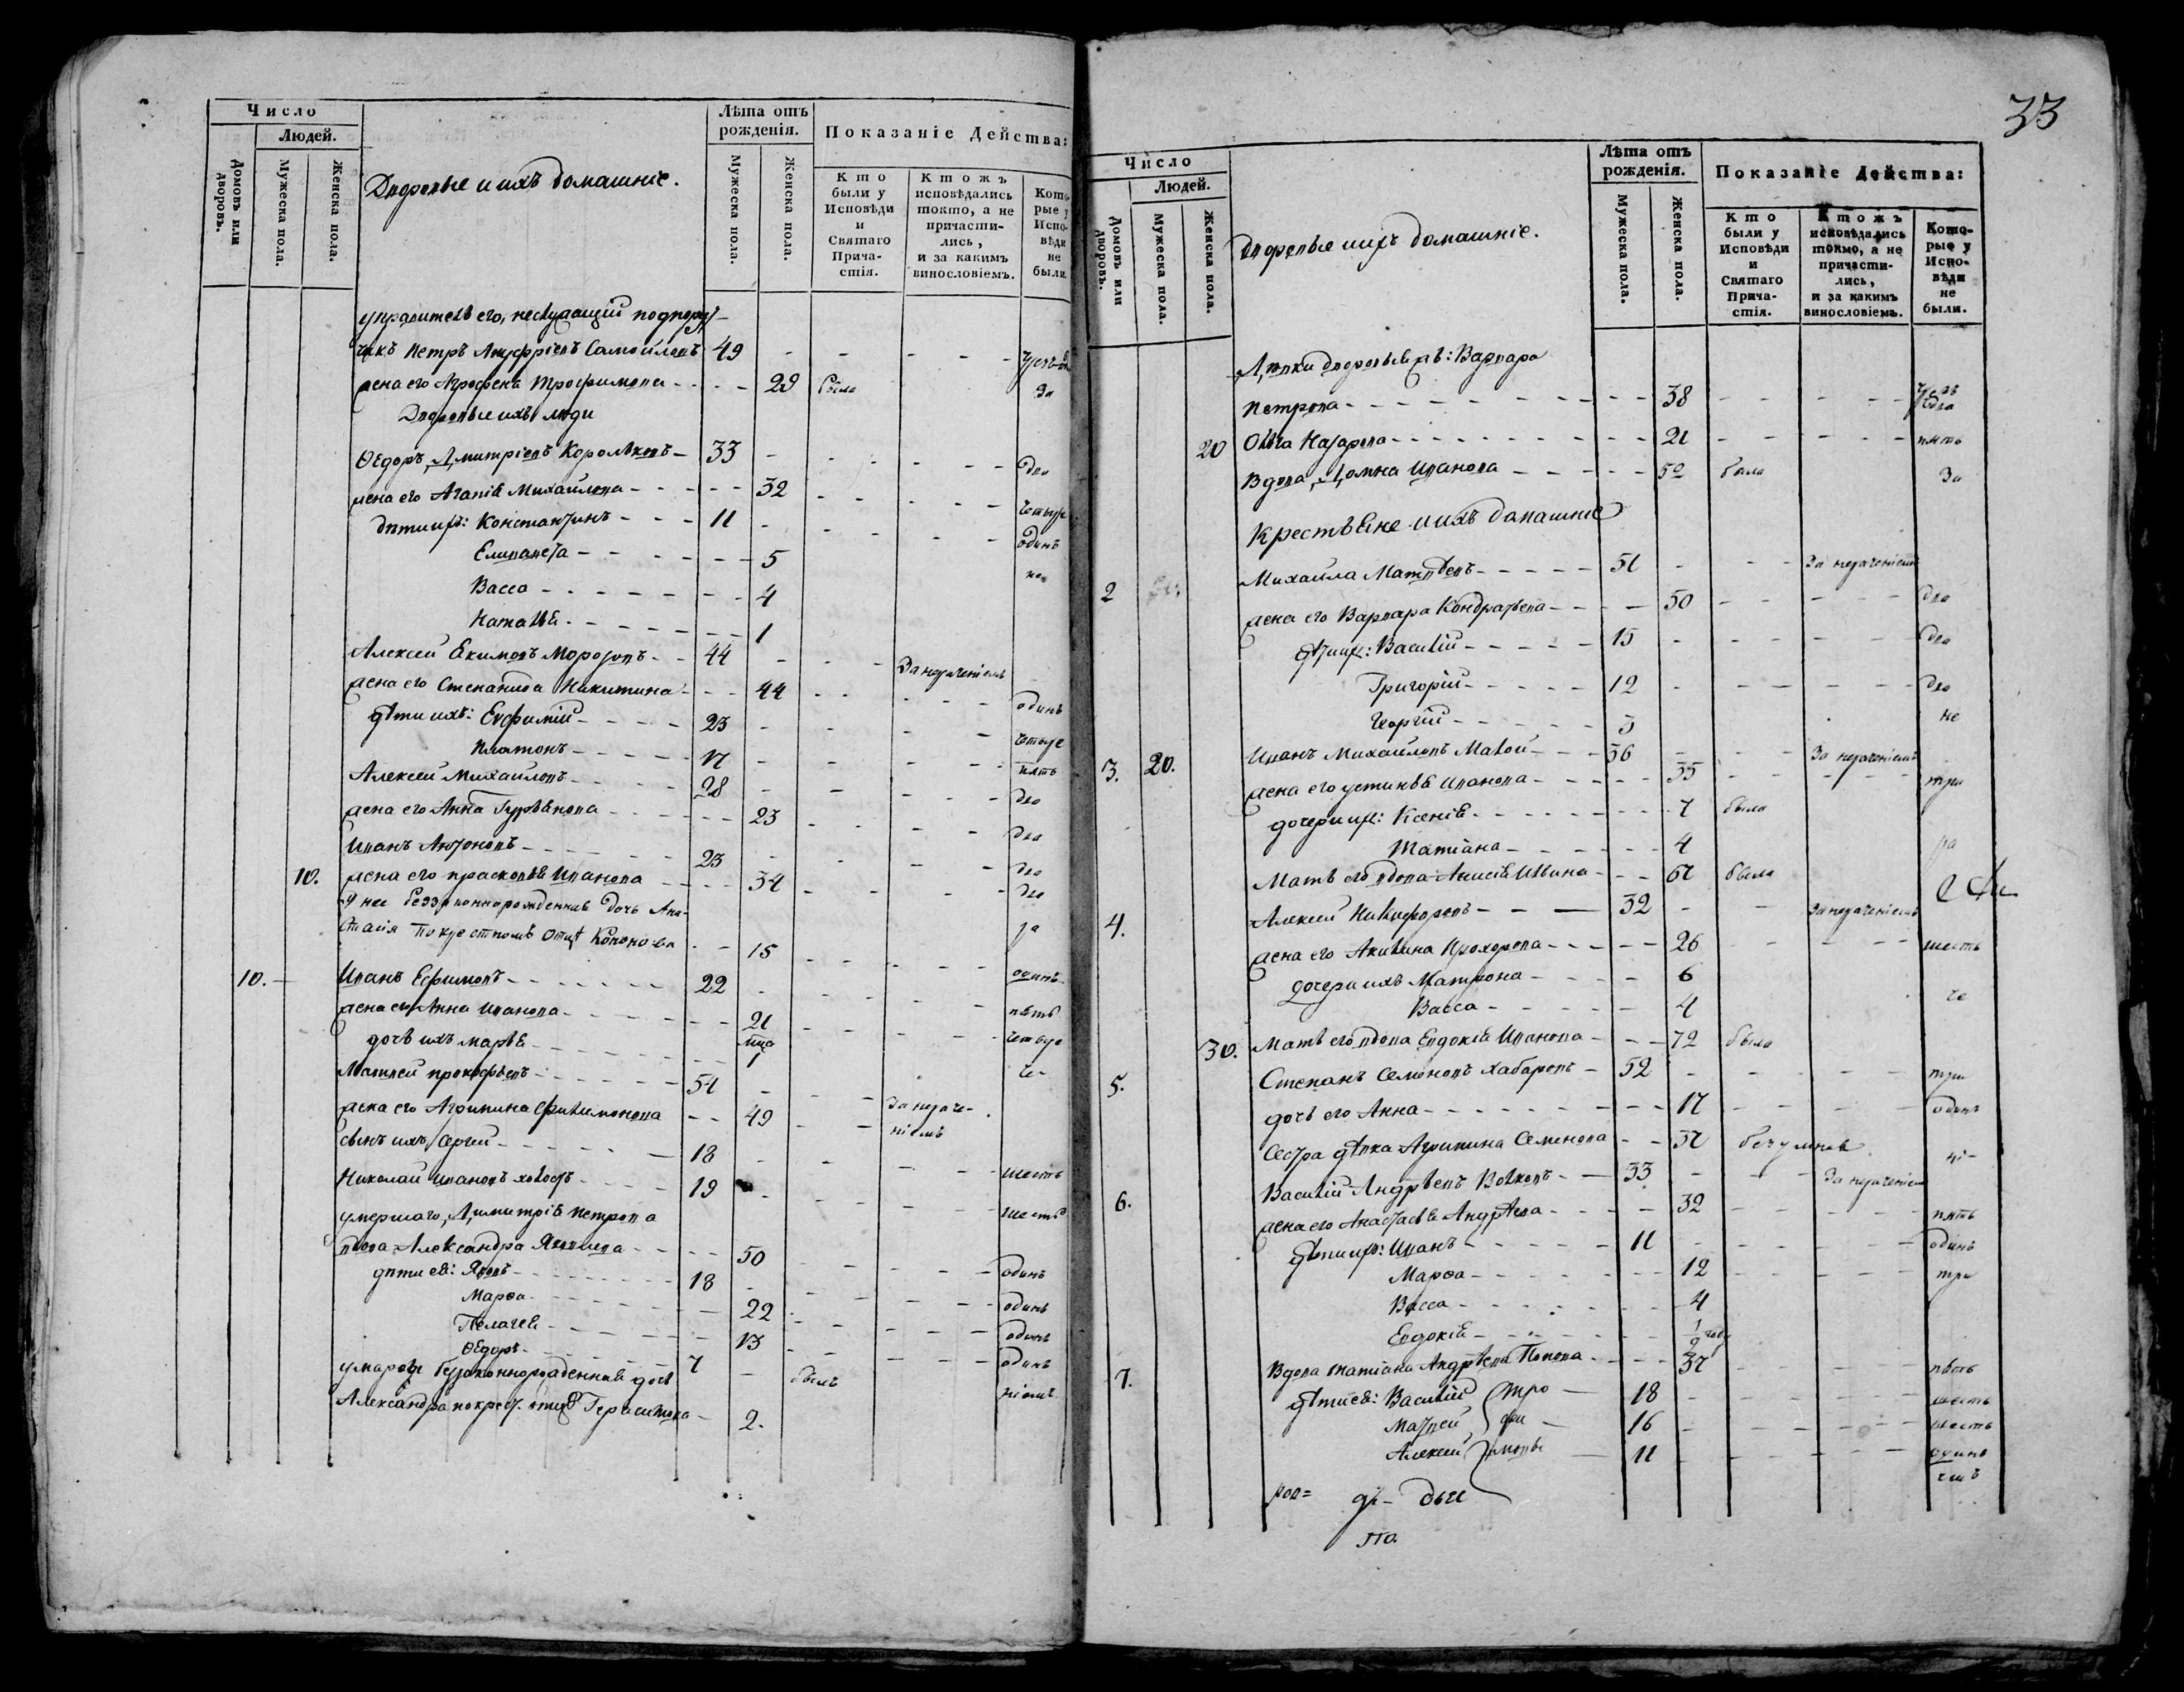 Число
Людей.
Домовъ или дворовъ.
Мужеска пола.
Женска пола.
Дворовые и ихъ домашніе.
Лѣта отъ рожденія.
Мужеска пола.
Женска пола.
Показаніе Действа:
Кто были у Исповѣди и Святаго Прича-стія.
Ктожъ исповѣдались токмо, а не причасти-лись, и за какимъ винословіемъ.
Кото-рые у Испо-вѣди не были.
управитель его, неслужащій подпору-
чикъ Петръ Ануфріевъ Самойловъ 49
жена его Агрофена Трофимова 29 была
Дворовые ихъ люди
Ѳедоръ Дмитріевъ Корольковъ 33 два
жена его Агапія Михайлова 32 четыре
дѣти ихъ: Константинъ 11 одинъ
Елизавета 5
Васса 4
Наталья 1
Алексей Екимовъ Морозовъ 44 За нераченіемъ
жена его Степанида Никитина 44 одинъ
дѣти ихъ: Евфимій 23 четыре
Платонъ 17 пять
Алексей Михайловъ 28 два
жена его Анна Гурьянова 23 два
Иванъ Антоновъ 23 два
10. жена его Прасковья Иванова 34 два
У нее беззаконнорожденная дочь Ана-
стасія по крестномъ отцѣ Кононова 15 одинъ
10. Иванъ Ефимовъ 22 пять
жена его Анна Иванова 21 четыре
дочь ихъ Марья мца 1
Матвей Прокофьевъ 54 За нераче-
жена его Агрипина Филимонова 49 ніемъ
сынъ ихъ Сергей 18 шесть
Николай Ивановъ Холостъ 19 шесть
умершаго Дмитрія Петрова
вдова Александра Яковлева 50 одинъ
дѣти ея: Яковъ 18 одинъ
Марѳа 22 одинъ
Пелагея 13 одинъ
Ѳедоръ 7 былъ
у Марѳы беззаконнорожденная дочь
Александра по крест. отцѣ Герасимова 2.
33
Число
Людей.
Домовъ или дворовъ.
Мужеска пола.
Женска пола.
Дворовые и ихъ домашніе.
Лѣта отъ рожденія.
Мужеска пола.
Женска пола.
Показаніе Действа:
Кто были у Исповѣди и Святаго Прича-стія.
Ктожъ исповѣдались токмо, а не причасти-лись, и за какимъ винословіемъ.
Кото-рые у Испо-вѣди не были.
Дѣвки дворовыя: Варвара
Петрова 38
20 Ольга Назарова 21 пять
Вдова Домна Иванова 52 была За
Крестьяне и ихъ домашніе
2 Михайла Матвѣевъ 51 За нераченіемъ
жена его Варвара Кондратьева 50 два
дѣти ихъ: Василій 15 два
Григорій 12 два
Георгій 3 не
3. 20. Иванъ Михайловъ Малой 36 За нераченіемъ
жена его Устинья Иванова 35 три
дочери ихъ: Ксенія 7 была
Татіана 4 ра
Мать его вдова Анисія Ильина 61 была
4. Алексей Никифоровъ 32 За нераченіемъ
жена его Акилина Прохорова 26 шесть
дочери ихъ Матрона 6
Васса 4 че
30. Мать его вдова Евдокія Иванова 72 была
5. Степанъ Семеновъ Хабаровъ 52 три
дочь его Анна 17 одинъ
Сестра дѣвка Агрипина Семенова 37 безумная ні-
6. Василій Андреевъ Волковъ 33 За нераченіем
жена его Анастасья Андрѣева 32 пять
дѣти ихъ: Иванъ 11 одинъ
Марѳа 12 три
Васса 4
Евдокія 1/2 году
7. Вдова Татіана Андрѣева Попова 37 пять
дѣти ея: Василій Тро 18 шесть
Матвей фи 16 шесть
Алексей мовы 11 одинъ
емъ